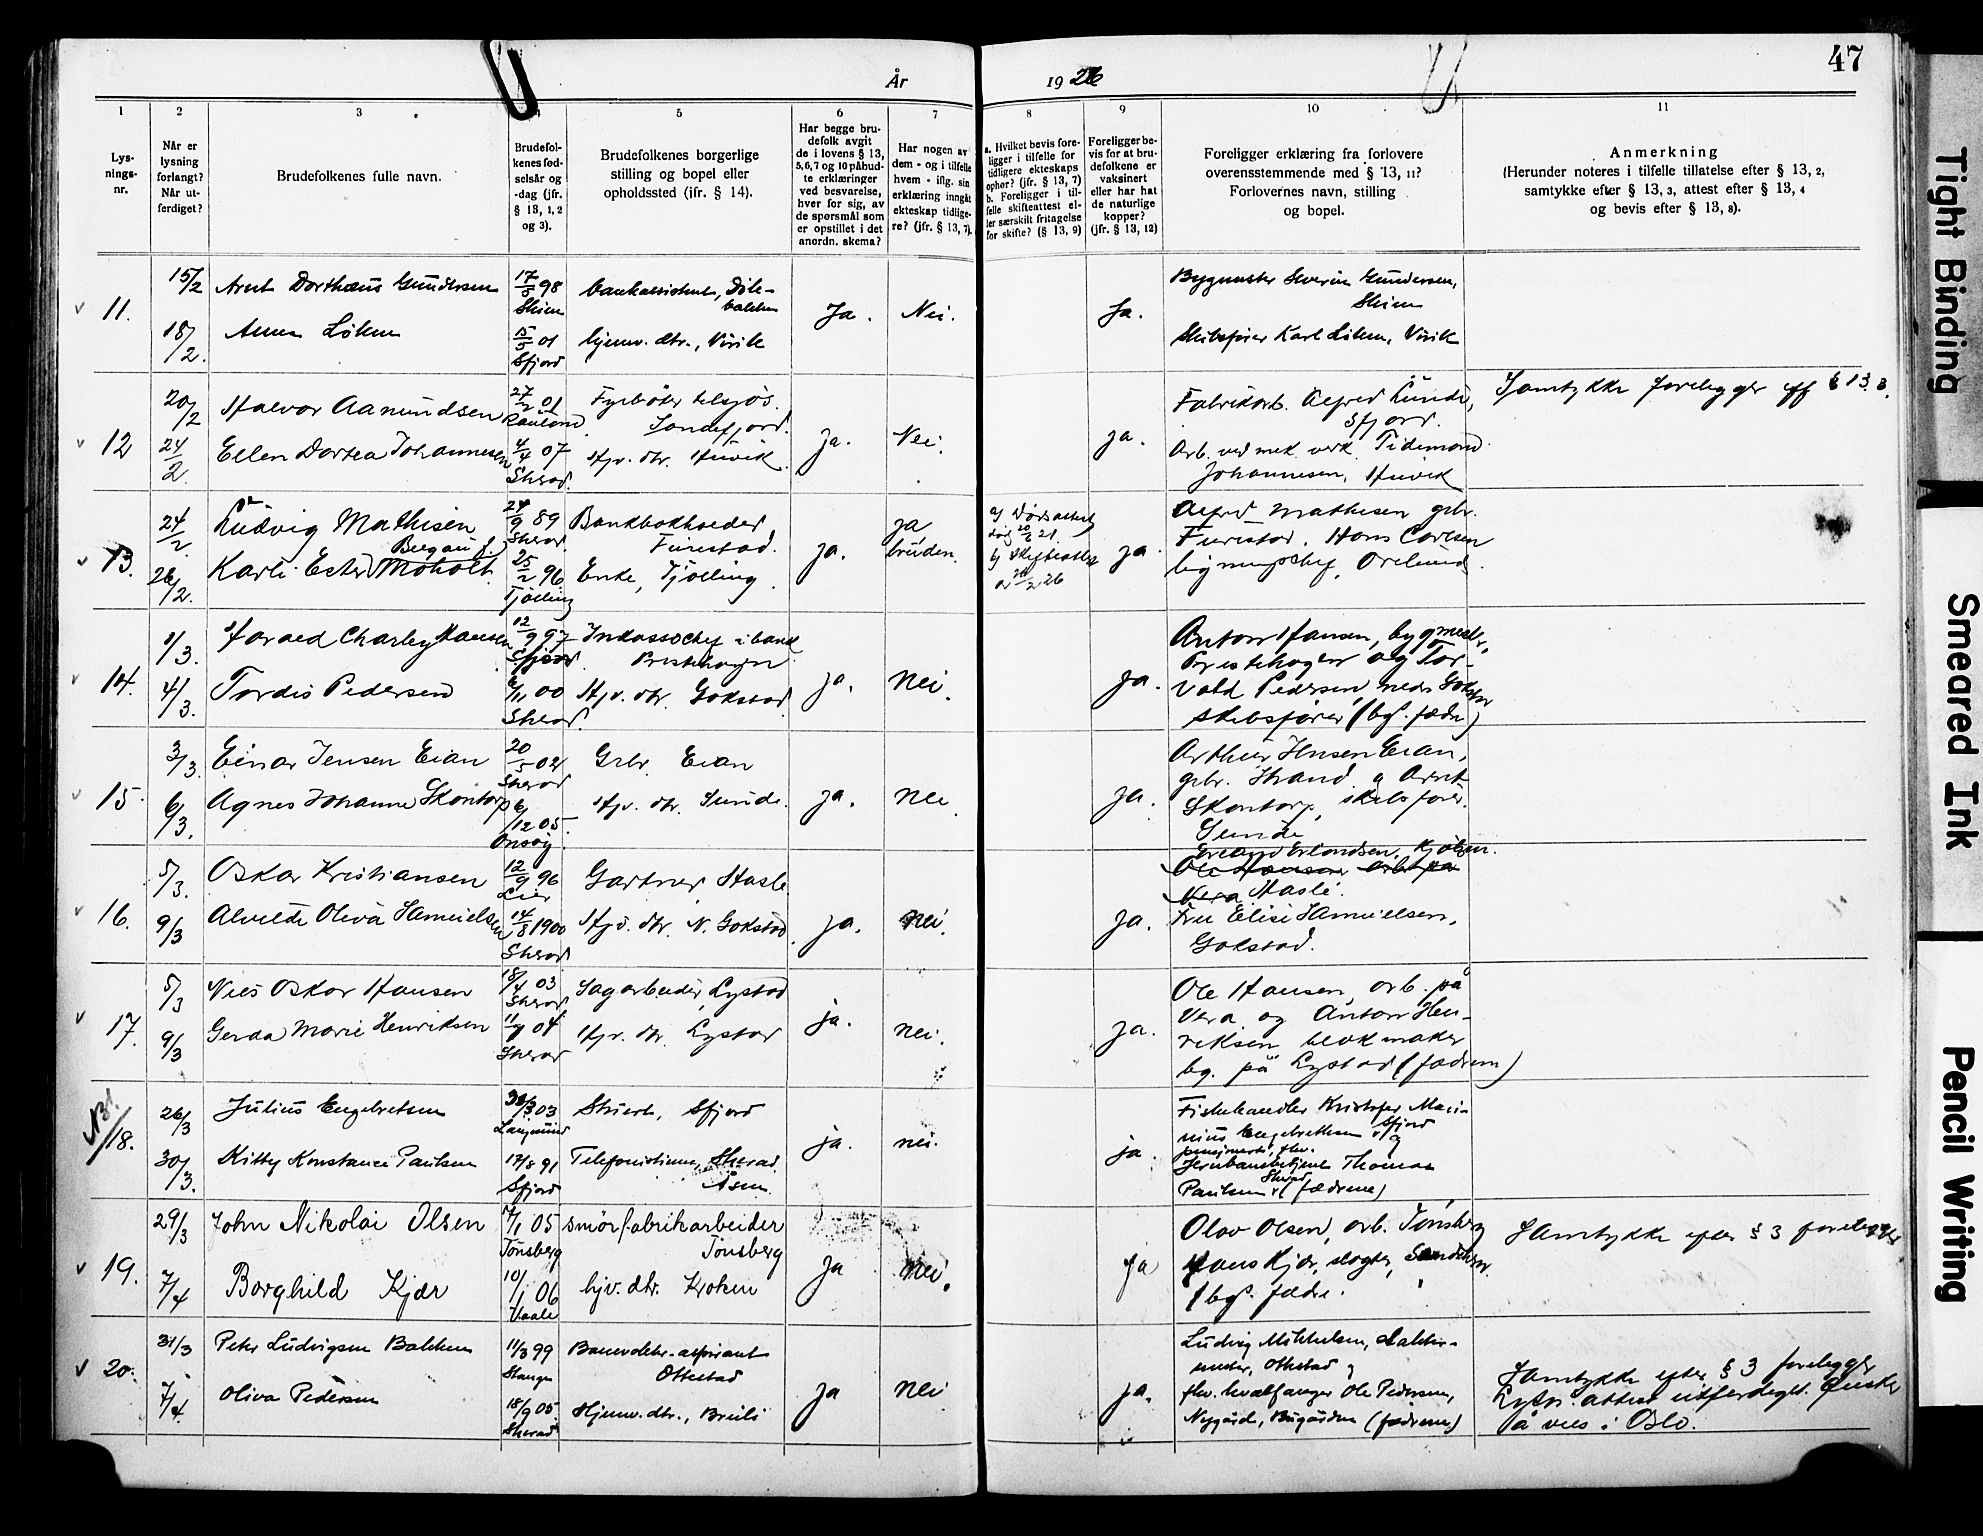 47
År 1926
1
Lys-
nings-
nr.
2
Når er
lysning
forlangt?
Når ut-
ferdiget?
3
Brudefolkenes fulle navn.
4
Brudefol-
kenes fød-
selsår og
-dag (jfr.
§ 13, 1, 2
og 3).
5
Brudefolkenes borgerlige
stilling og bopel eller
opholdssted (ifr. § 14).
6
Har begge bru-
defolk avgit
de i lovens § 13,
5,6,7 og 10 påbud-
te erklæringer
ved besvarelse,
hver for sig, av
de spørsmål som
er opstillet i det
anordn. skema?
7
Har nogen av
dem - og i tilfelle
hvem - iflg. sin
erklæring inngåt
ekteskap tidlige-
re? (jfr. § 13, 7).
8
a. Hvilket bevis fore-
ligger i tilfelle for
tidligere ekteskaps
ophør? (jfr. § 13, 7)
b. Foreligger i til-
felle skifteattest el-
ler særskilt fritagelse
for skifte? (§ 13, 9)
9
Foreligger be-
vis for at bru-
defolkene er
vaksinert
eller har hat
de naturlige
kopper?
(jfr. § 13, 12)
10
Foreligger erklæring fra forlovere
overensstemmende med § 13, 11?
Forlovernes navn, stilling
og bopel.
11
Anmerkning
(Herunder noteres i tilfelle tillatelse efter § 13, 2,
samtykke efter § 13, 3, attest efter § 13, 4
og bevis efter § 13, 8).
11.
15/2
18/2.
Arnt Dorthæus Gundersen
Anna Løken
17/5 98
Skien
15/5 01
Sfjord
bankassistent,
hjemv. dtr., Virik
Ja.
Nei.
Ja.
Bygmester Severin Gundersen,
Skien
Skibsfører Karl Løken, Virik
12
20/2
24/2.
Halvor Aamundsen
Ellen Dortea Johannesen
27/2 01
Rauland
4/4 07
Sherad.
Fyrbøter tilsjøs.
Sandefjord.
Hjv. dtr. Huvik
ja.
Nei.
ja.
Fabrikarb. Alfred Lunde,
Sfjord.
Arb. ved mek. verk. Tidemand
Johannesen, Huvik
Samtykke foreligger eff § 13.3.
13.
24/2.
26/2.
Ludvig Mathisen
Bergan f.
Karli Ester Moholt
24/9 89
Sherad.
25/2 96
Tjølling
Bankbokholder
Furestad.
Enke, Tjølling.
ja.
ja
bruden.
a) Dødsattest
b) Skifteattest
ja
Alfred Mathisen grbr.
Furestad. Hans Carlsen
ligningschef, Orelund.
14.
1/3.
4/3.
Harald Charley Hansen
Tordis Pedersen
12/9 97
Sfjord
6/11 00
Sherad.
Inkassochef i bank
Prestehagen
Hjv. dtr. Gokstad.
ja.
nei.
ja.
Anton Hansen, bygmester,
Prestehagen og Tor-
vald Pedersen, nedr Gokstad
skibsfører (bg. fædre)
15.
3/3.
6/3.
Einar Jensen Eian
Agnes Johanne Skontorp
20/5 02
Sherad
6/12 05.
Onsøy
Grbr. Eian
Hjv. dtr. Sunde.
ja.
nei
ja.
Arthur Jensen Eian,
grbr. Strand og Arnt
Skontorp, skibsfører.
Sunde
16.
5/3.
9/3
Oskar Kristiansen
Alvilde Oliva Samuelsen
12/9 96
Lier
14/8 1900
Sherad
Gartner Hasle
Hjv. dtr. N. Gokstad.
ja.
nei.
ja.
Erland Erlandsen, Kjøbm.
Ole Hansen arb. på
Vera Hasle.
Fru Elise Samuelsen,
Gokstad.
17.
5/3
9/3
Nils Oskar Hansen
Gerda Marie Henriksen
18/4 03
Sherad
11/9 04
Sherad
Sagarbeider, Lystad
Hjv. dtr. Lystad
ja.
nei.
ja.
Ole Hansen, arb. på
Vera og Anton Hen-
riksen blokmaker
bg. på Lystad (fædrene)
NB!
18.
26/3
30/3.
Julius Engebretsen
Kitty Konstance Paulsen
03
Langesund
17/8 91
Sfjord
Stuert, Sfjord
Telefonistinne, Sherad
Åsen
ja.
nei.
ja.
Fiskehandler Kristofer Mari-
nius Engebretsen, Sfjord og
pensjonert, fhv.
Jernbanebetjent Thomas
Paulsen, Sherad (fædrene)
19.
29/3
7/4
John Nikolai Olsen
Borghild Kjær
7/1 05
Tønsberg
10/1 06
Vaale
smørfabrikarbeider
Tønsberg
hjv. dtr. Kroken
ja
nei.
ja
Olav Olsen, arb. Tønsberg
Hans Kjær, slagter,
(bg. fædre.
Samtykke efter § 3 foreligger
20.
31/3
7/4.
Peter Ludvigsen Bakken
Oliva Pedersen
11/3 99
Stange
18/9 05.
Sherad
Banevokter-aspirant
Ottestad
Hjemv. dtr., Breili
ja
nei
ja.
Ludvig Mikkelsen,
mester, Ottestad og
fhv. hvalfanger Ole Pedersen,
Nygård, Bugården (fædrene)
Samtykke efter § 3 foreligger
Lysn. attest utferdiget. Ønsker
å vies i Oslo.
Tight Binding
Smeared Ink
Pencil Writing